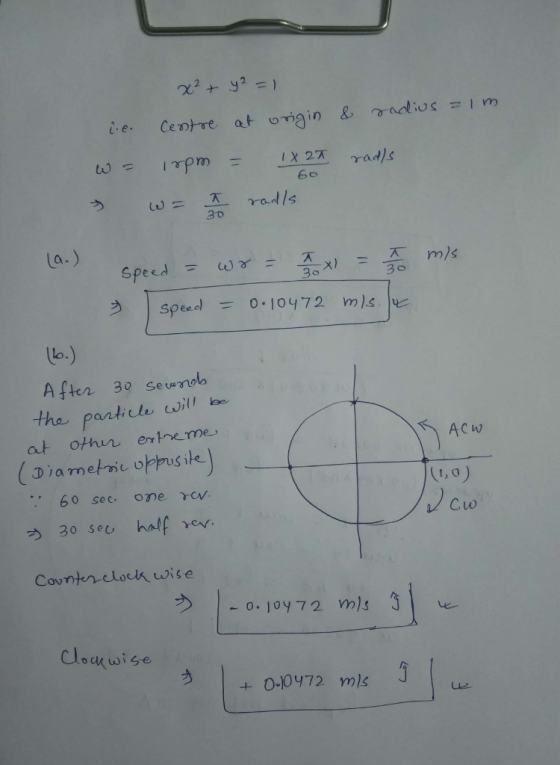 x² + y² = 1
i.e. Centre at origin & radius = 1 m
ω = 1 rpm = 1 × 2π / 60 rad/s
⇒ ω = π/30 rad/s
(a.)
Speed = ωr = π/30 × 1 = π/30 m/s
⇒ Speed = 0.10472 m/s
(b.)
After 30 seconds
the particle will be
at other extreme
(Diametric opposite)
∵ 60 sec. one rev.
⇒ 30 sec half rev.
ACW
(1,0)
CW
Counterclockwise
⇒ - 0.10472 m/s ĵ
Clockwise
⇒ + 0.10472 m/s ĵ